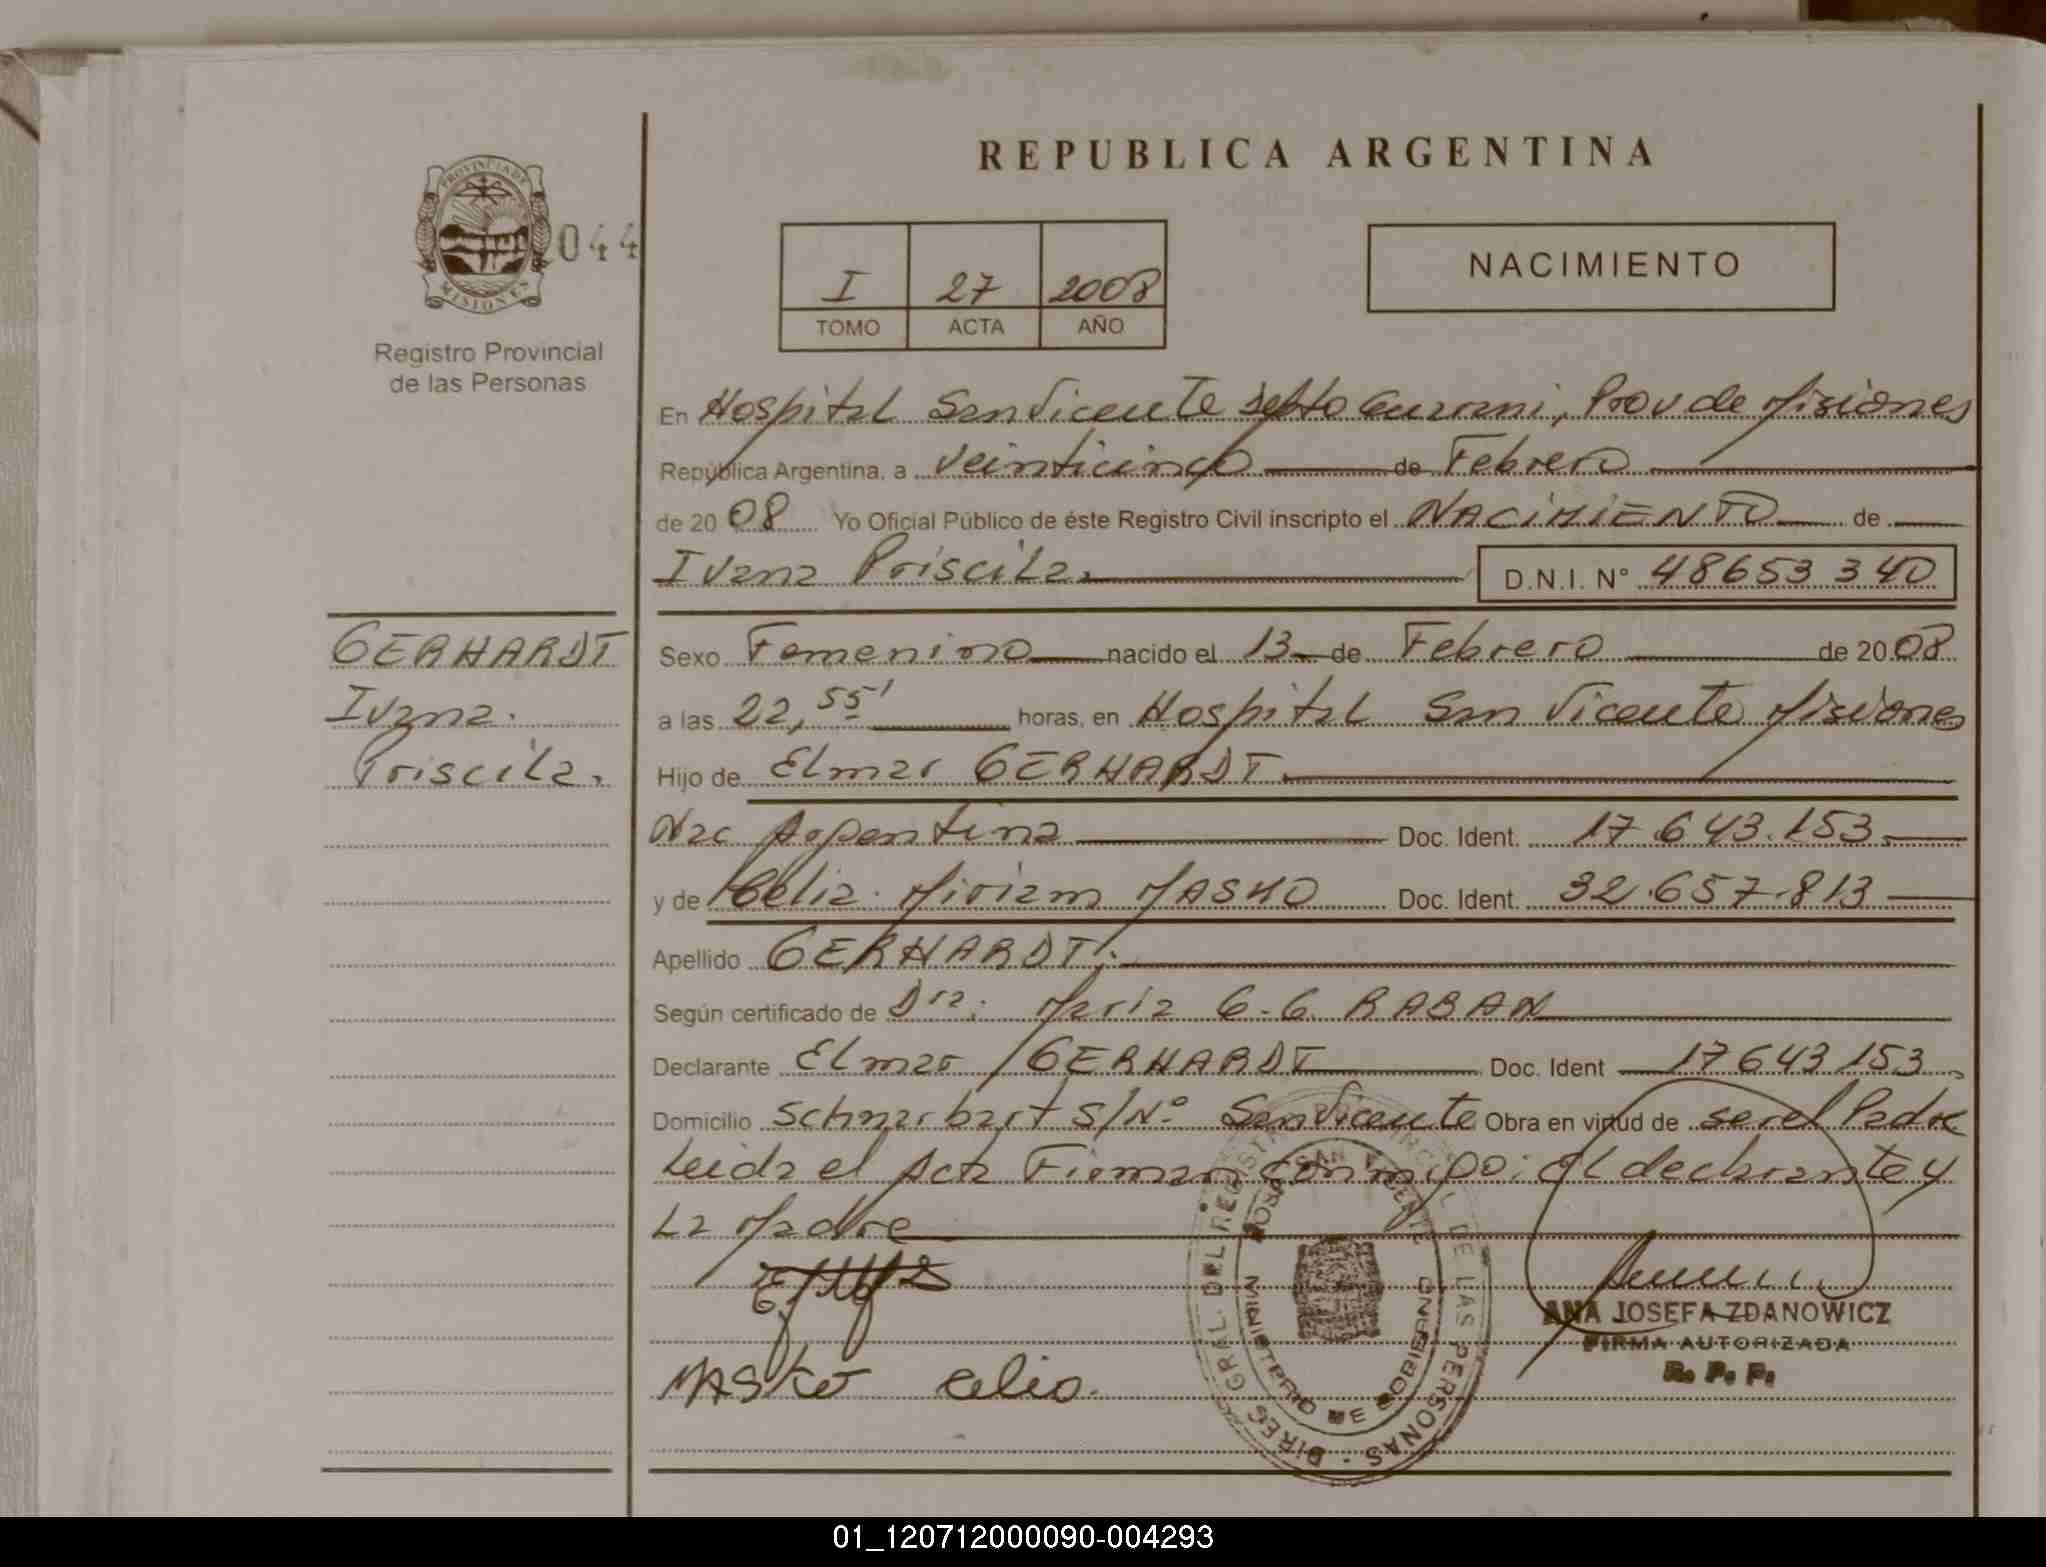 REPUBLICA ARGENTINA
PROVINCIA DE
MISIONES
044
Registro Provincial
de las Personas
I 27 2008
TOMO ACTA AÑO
NACIMIENTO
En Hospital San Vicente Depto Guarani, Prov de Misiones
República Argentina, a veinticinco de Febrero
de 2008 Yo Oficial Público de éste Registro Civil inscripto el NACIMIENTO de
Ivana Priscila. D.N.I. N° 48653340
GERHARDT
Ivana.
Priscila.
Sexo Femenino nacido el 13 de Febrero de 2008
a las 22,55' horas, en Hospital San Vicente Misiones
Hijo de Elmar GERHARDT
Nac Argentina Doc. Ident. 17.643.153.
y de Celia Miriam MASKO Doc. Ident. 32.657.813
Apellido GERHARDT.
Según certificado de Dra. Maria G. G. RABAN
Declarante Elmar GERHARDT Doc. Ident 17643153
Domicilio Schnarbart S/N° San Vicente Obra en virtud de ser el Padre
Leida el Acta Firman conmigo: el declarante y
La Madre
MASKO Celia.
DIREC GRAL. DEL REGISTRO PROVINCIAL DE LAS PERSONAS
HOSP. SAN VICENTE
MINISTERIO DE GOBIERNO
ANA JOSEFA ZDANOWICZ
FIRMA AUTORIZADA
R. P. P.
01_120712000090-004293